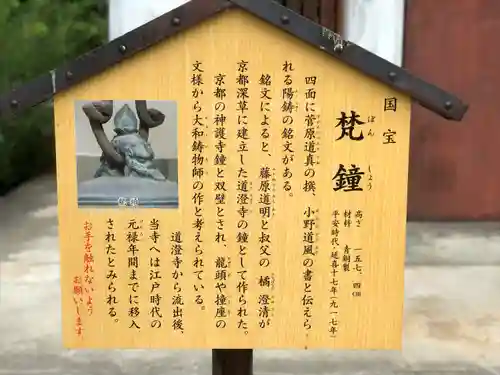 国宝
梵鐘
ぼん しょう
高さ 一五七、四㎝
材料 青銅製
平安時代・延喜十七年(九一七年)
四面に菅原道真の撰、小野道風の書と伝えら
れる陽鋳の銘文がある。
銘文によると、藤原道明と叔父の橘澄清が
京都深草に建立した道澄寺の鐘として作られた。
京都の神護寺鐘と双璧とされ、龍頭や撞座の
文様から大和鋳物師の作と考えられている。
道澄寺から流出後、
当寺へは江戸時代の
元禄年間までに移入
されたとみられる。
お手を触れないよう
お願いします。